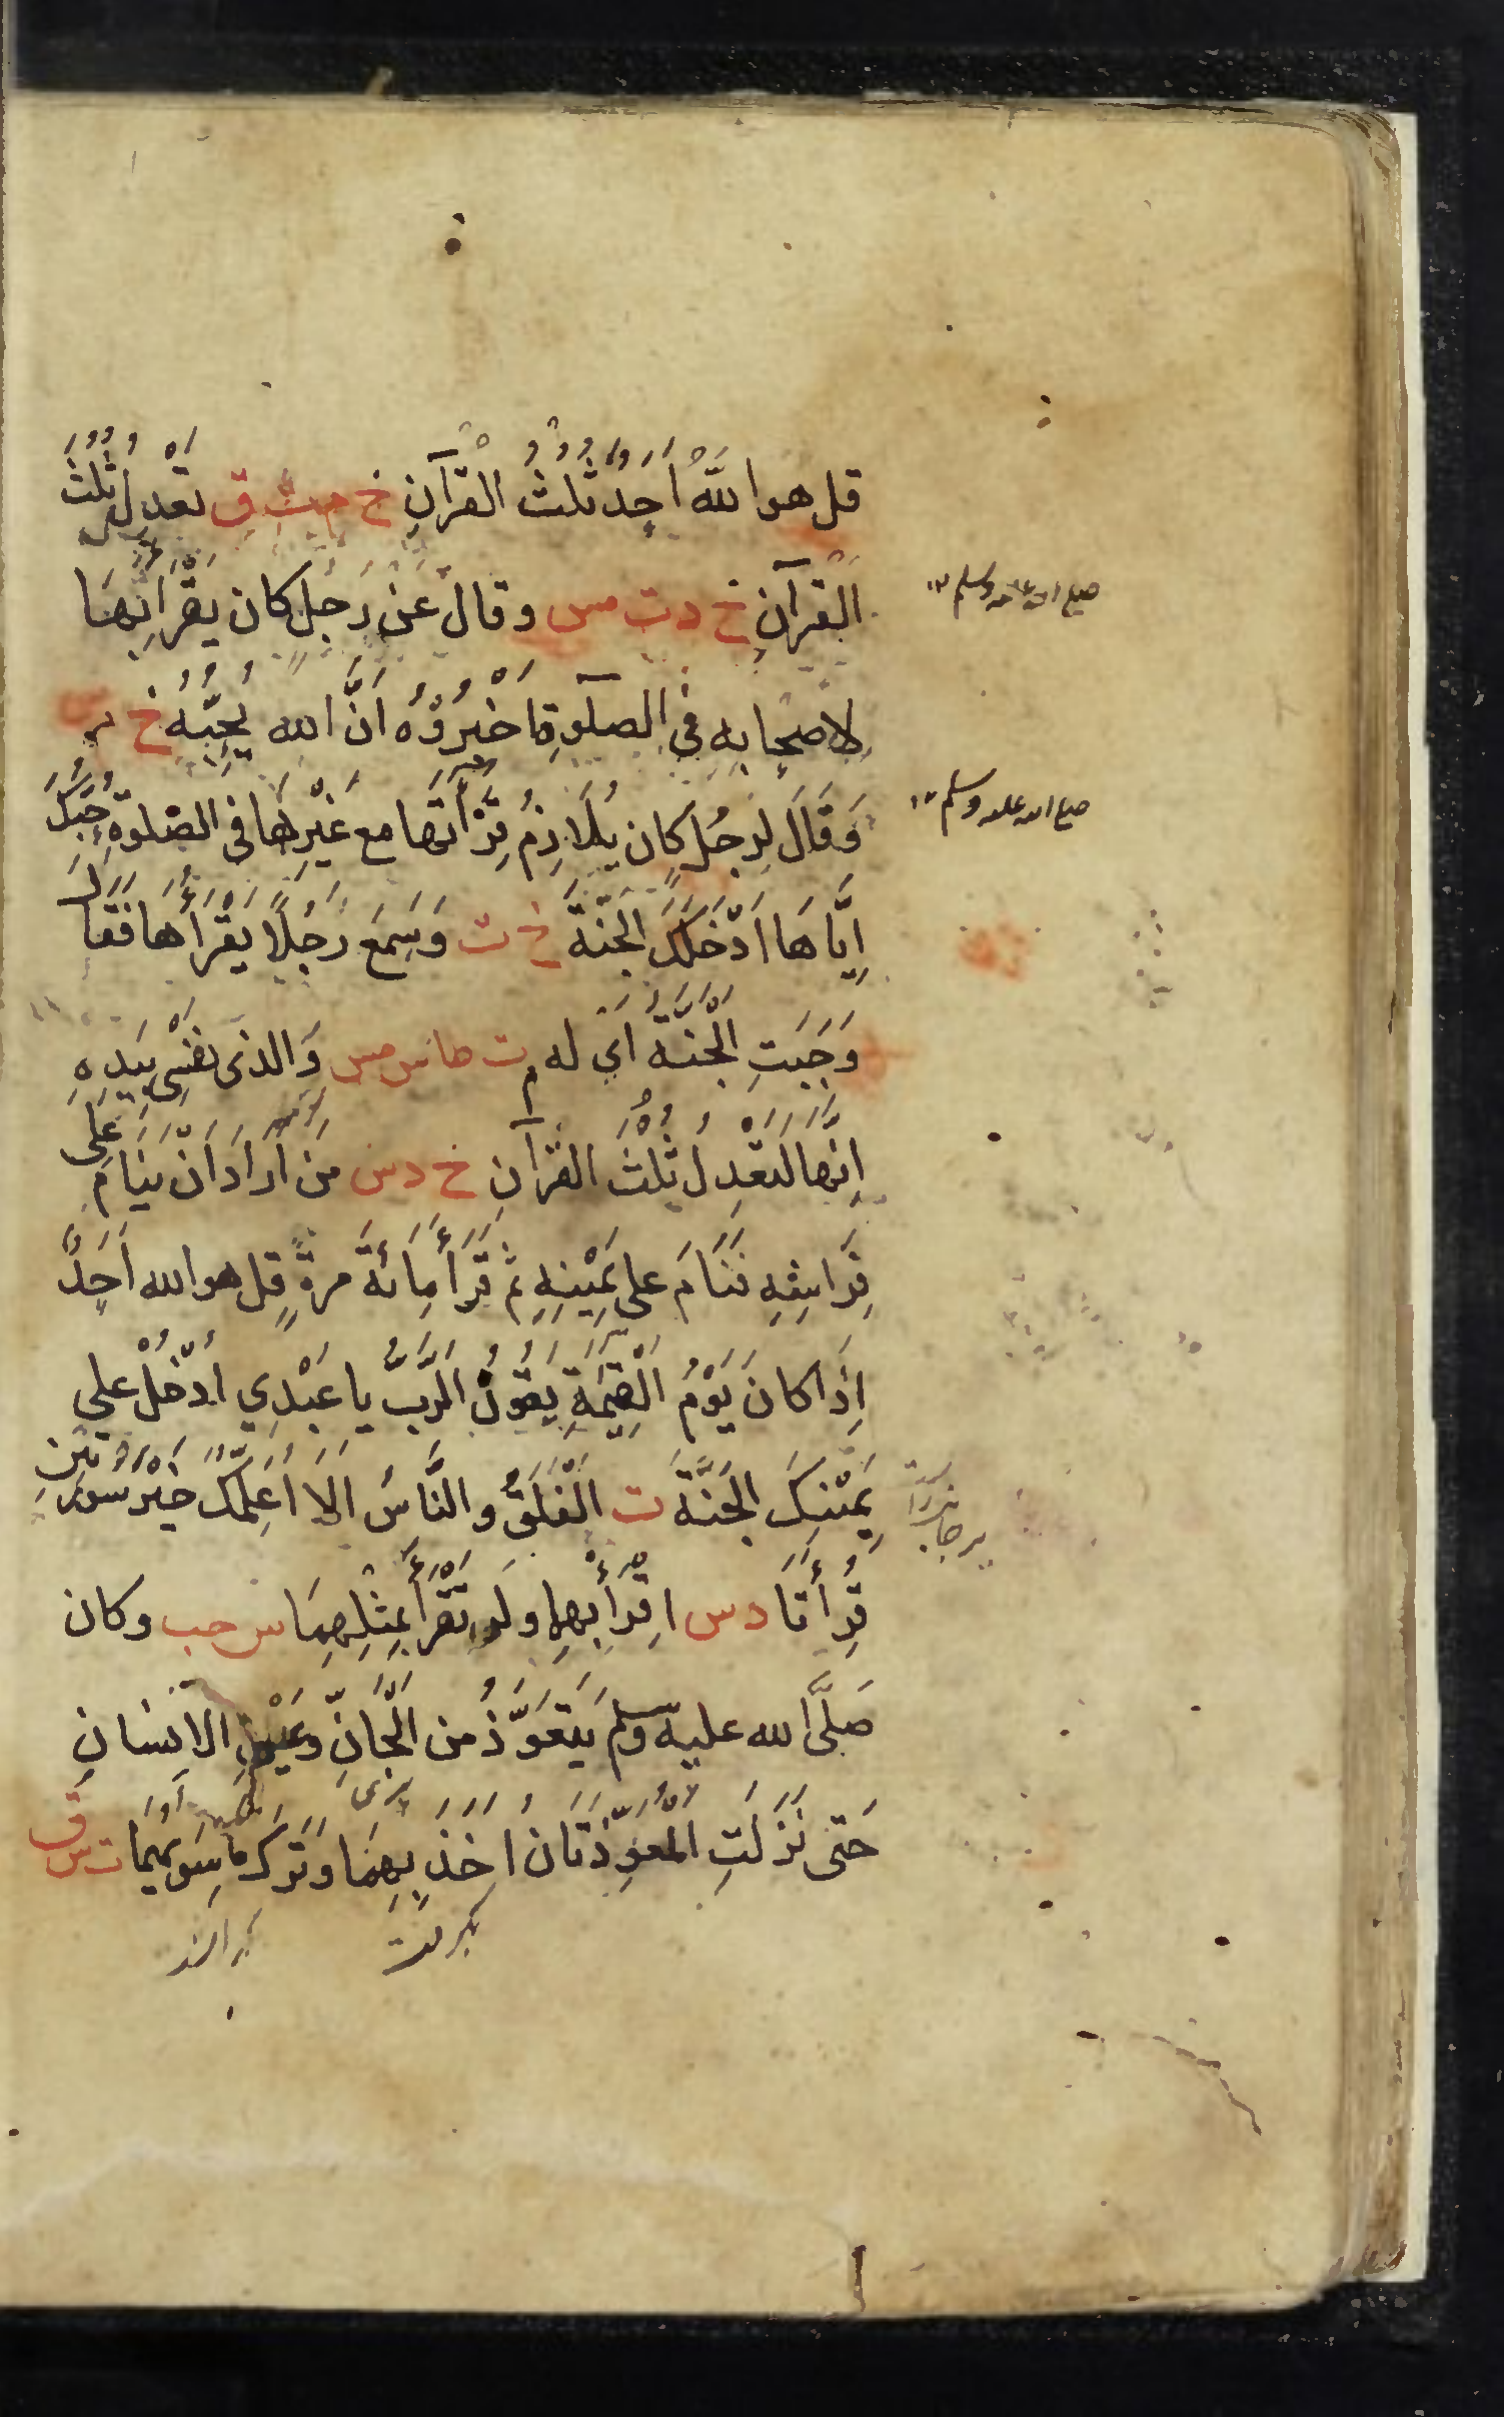 قل هو اللهُ اَحَدٌ ثُلُثُ القُرآنِ خ م ت ق تَعْدِلُ ثُلُثَ
القُرآنِ خ د ت س وقال عَنْ رَجُلٍ كان يَقْرَأُ بِهَا
صلى الله عليه وسلم ١٢
لاصحابِهِ فى الصلوةِ اَخْبِرُوْهُ اَنَّ الله يُحِبُّهُ خ م س
وَقَالَ لِرَجُلٍ كان يُلَازِمُ قِرَأَتَها مع غَيْرِها فى الصلوةِ حُبُّكَ
صلى الله عليه وسلم ١٢
اِيَّاهَا اَدْخَلَكَ الجَنَّةَ خ ت وَسَمِعَ رَجُلًا يَقْرَأُهَا فَقَالَ
وَجَبَتِ الجَنَّةُ اَىْ له ت طا س مس وَالذى نفسِى بِيَدِهِ
اِنَّها لَتَعْدِلُ ثُلُثَ القُرآنِ خ د س مَنْ اَرَادَ اَنْ يَنَامَ عَلى
فِرَاشِهِ فَنَامَ على يَمِيْنِهِ ثم قَرَأَ مِائَةَ مرةٍ قل هو الله اَحَدٌ
اِذَا كانَ يَوْمُ القِيٰمَةِ يَقُوْلُ الرَّبُّ يا عَبْدِي اُدْخُلْ على
يَمِيْنِكَ الجَنَّةَ ت الْفَلَقُ وَالنَّاسُ اَلَا اُعَلِّمُكَ خَيْرَ سُورَتَيْنِ
قُرِأَتَا د س اِقْرَأْ بِهِما ولَنْ تَقْرَأَ بِمِثْلِهِمَا س حب وكان
صَلَّى الله عليه وسلم يَتَعَوَّذُ من الجَانِّ وعَيْنِ الاِنسانِ
حَتى نَزَلَتِ المُعَوِّذَتَان اَخَذَ بِهِمَا وَتَرَكَ ما سِوٰيهُمَا ت س ق